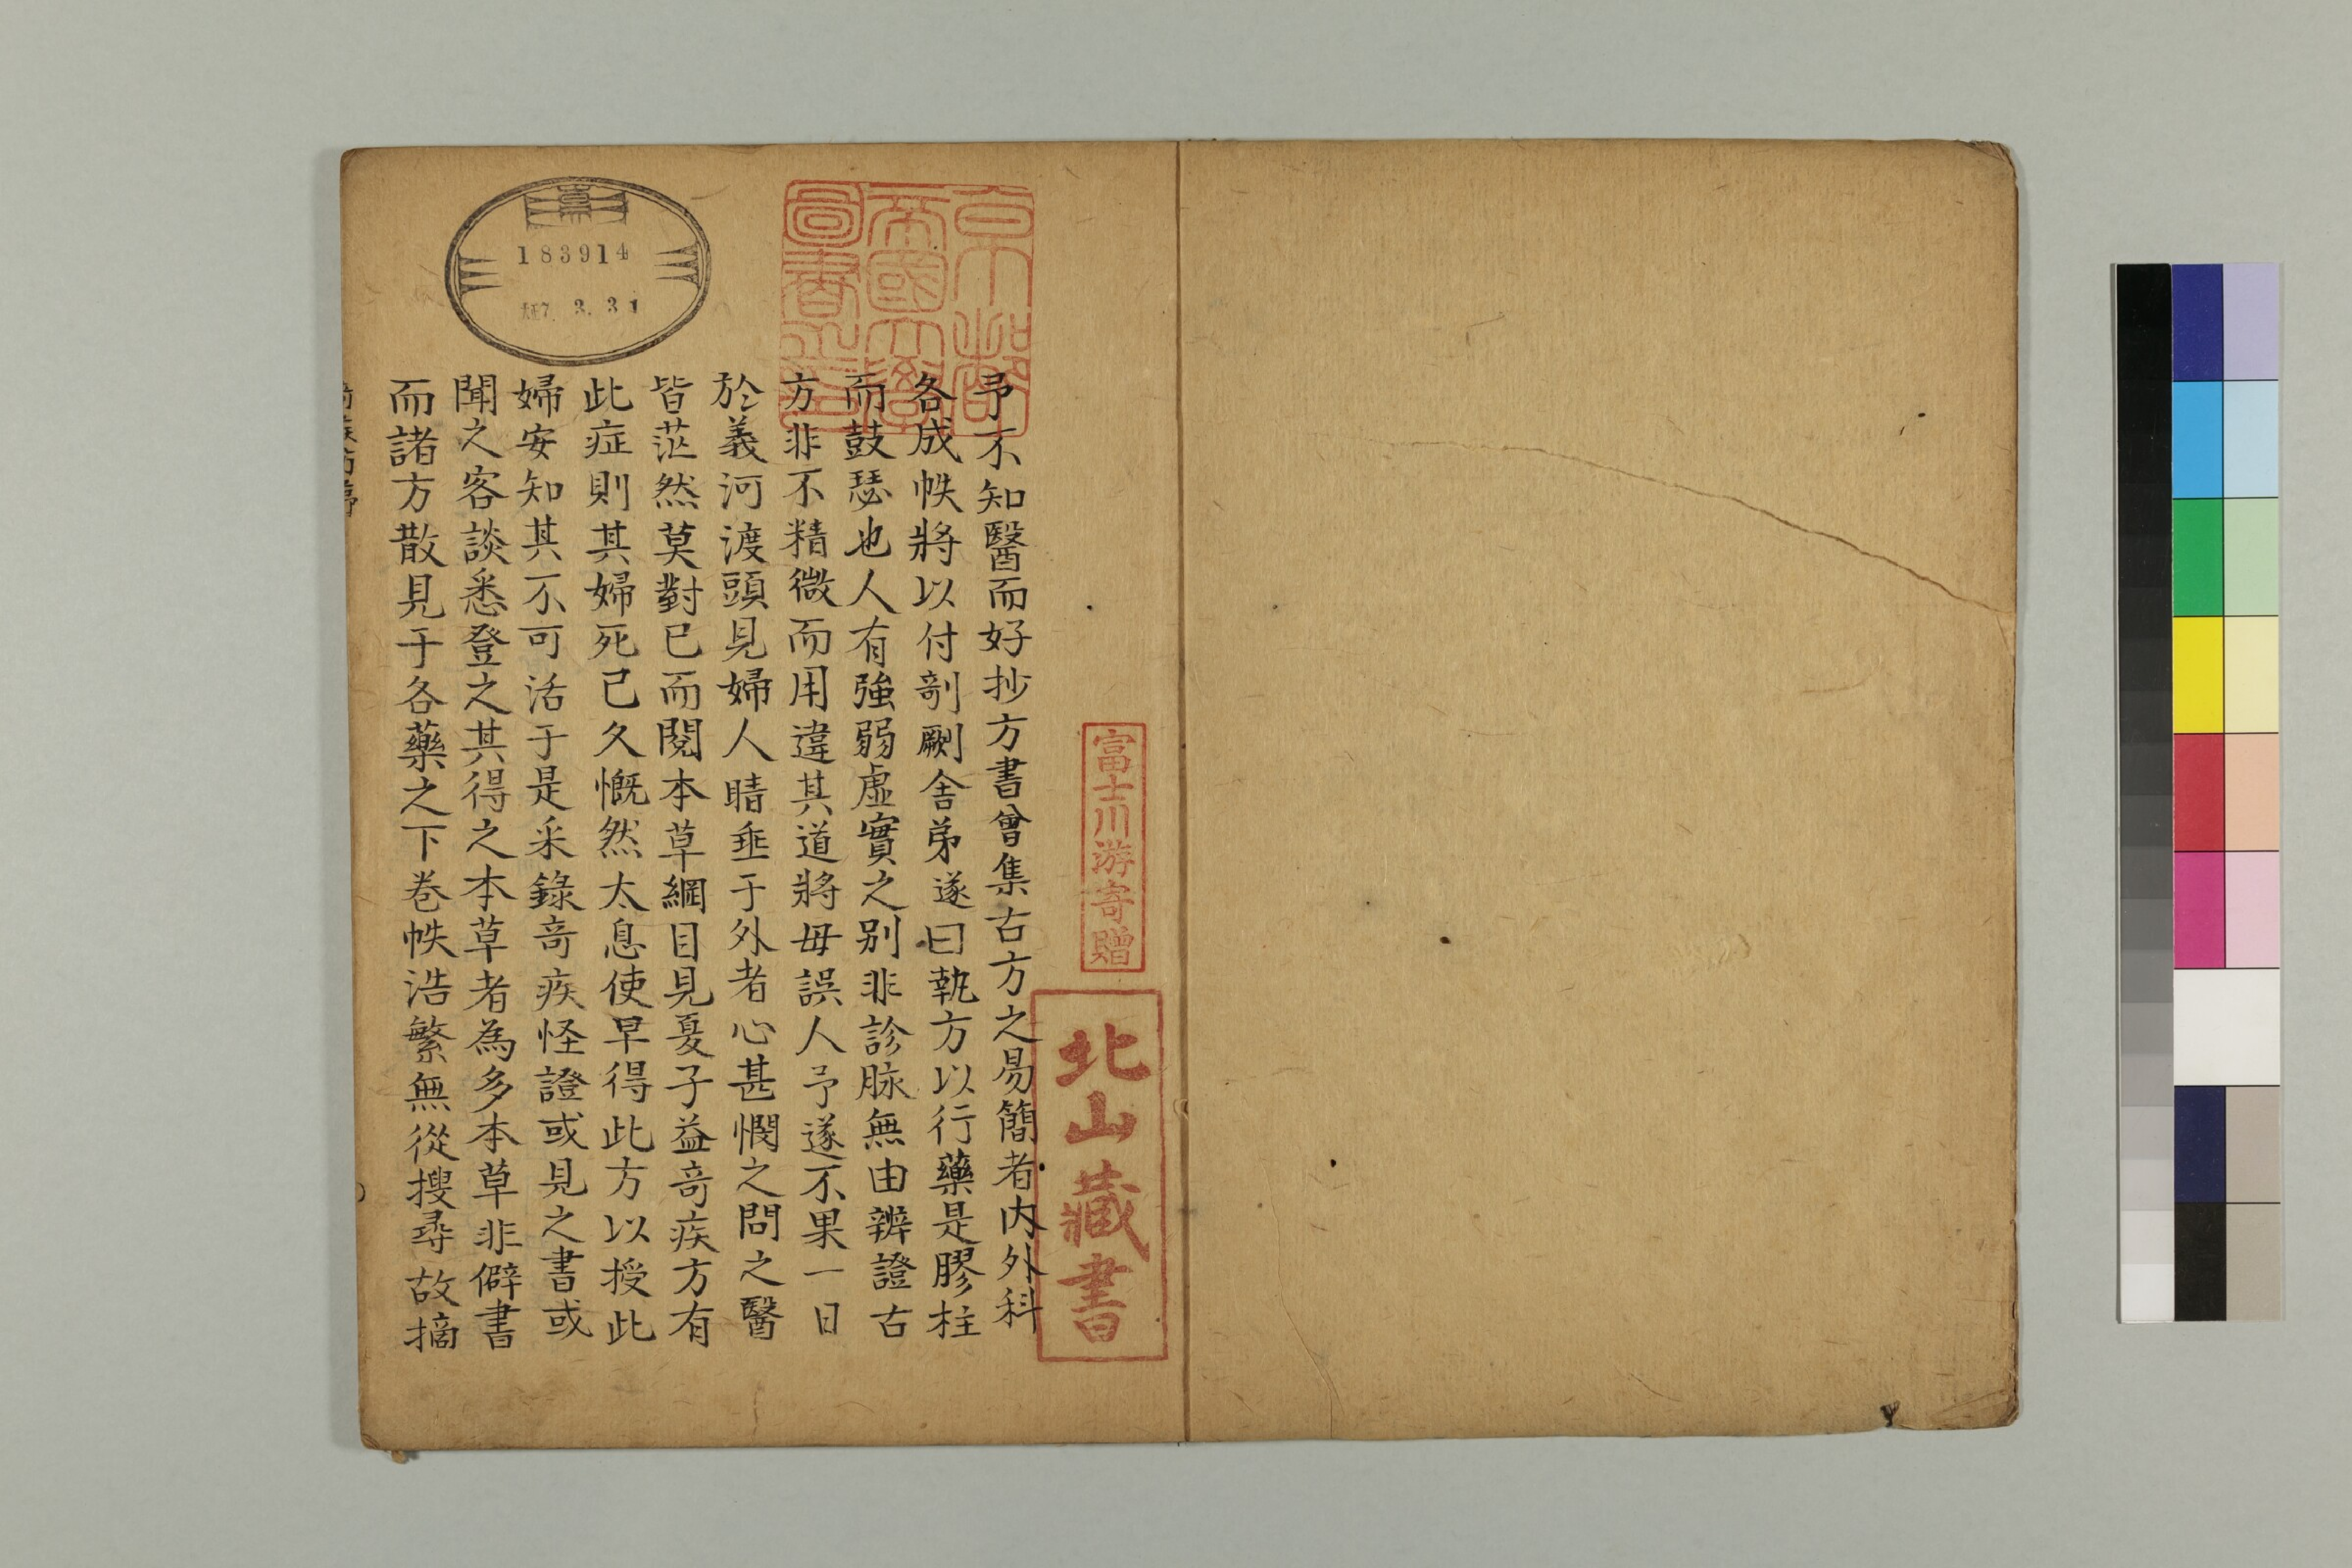 京都
帝國大學
圖書之印
富士川游寄贈
北山藏書
183914
大正7. 3. 31
予不知醫而好抄方書曾集古方之易簡者内外科
各成帙將以付剞劂舍弟遂曰執方以行藥是膠柱
而鼓瑟也人有強弱虛實之别非診脉無由辨證古
方非不精微而用違其道將毋誤人予遂不果一日
於義河渡頭見婦人睛垂于外者心甚憫之問之醫
皆茫然莫對已而閱本草綱目見夏子益竒疾方有
此症則其婦死已久慨然太息使早得此方以授此
婦安知其不可活于是采錄竒疾怪證或見之書或
聞之客談悉登之其得之本草者為多本草非僻書
而諸方散見于各藥之下卷帙浩繁無從搜尋故摘